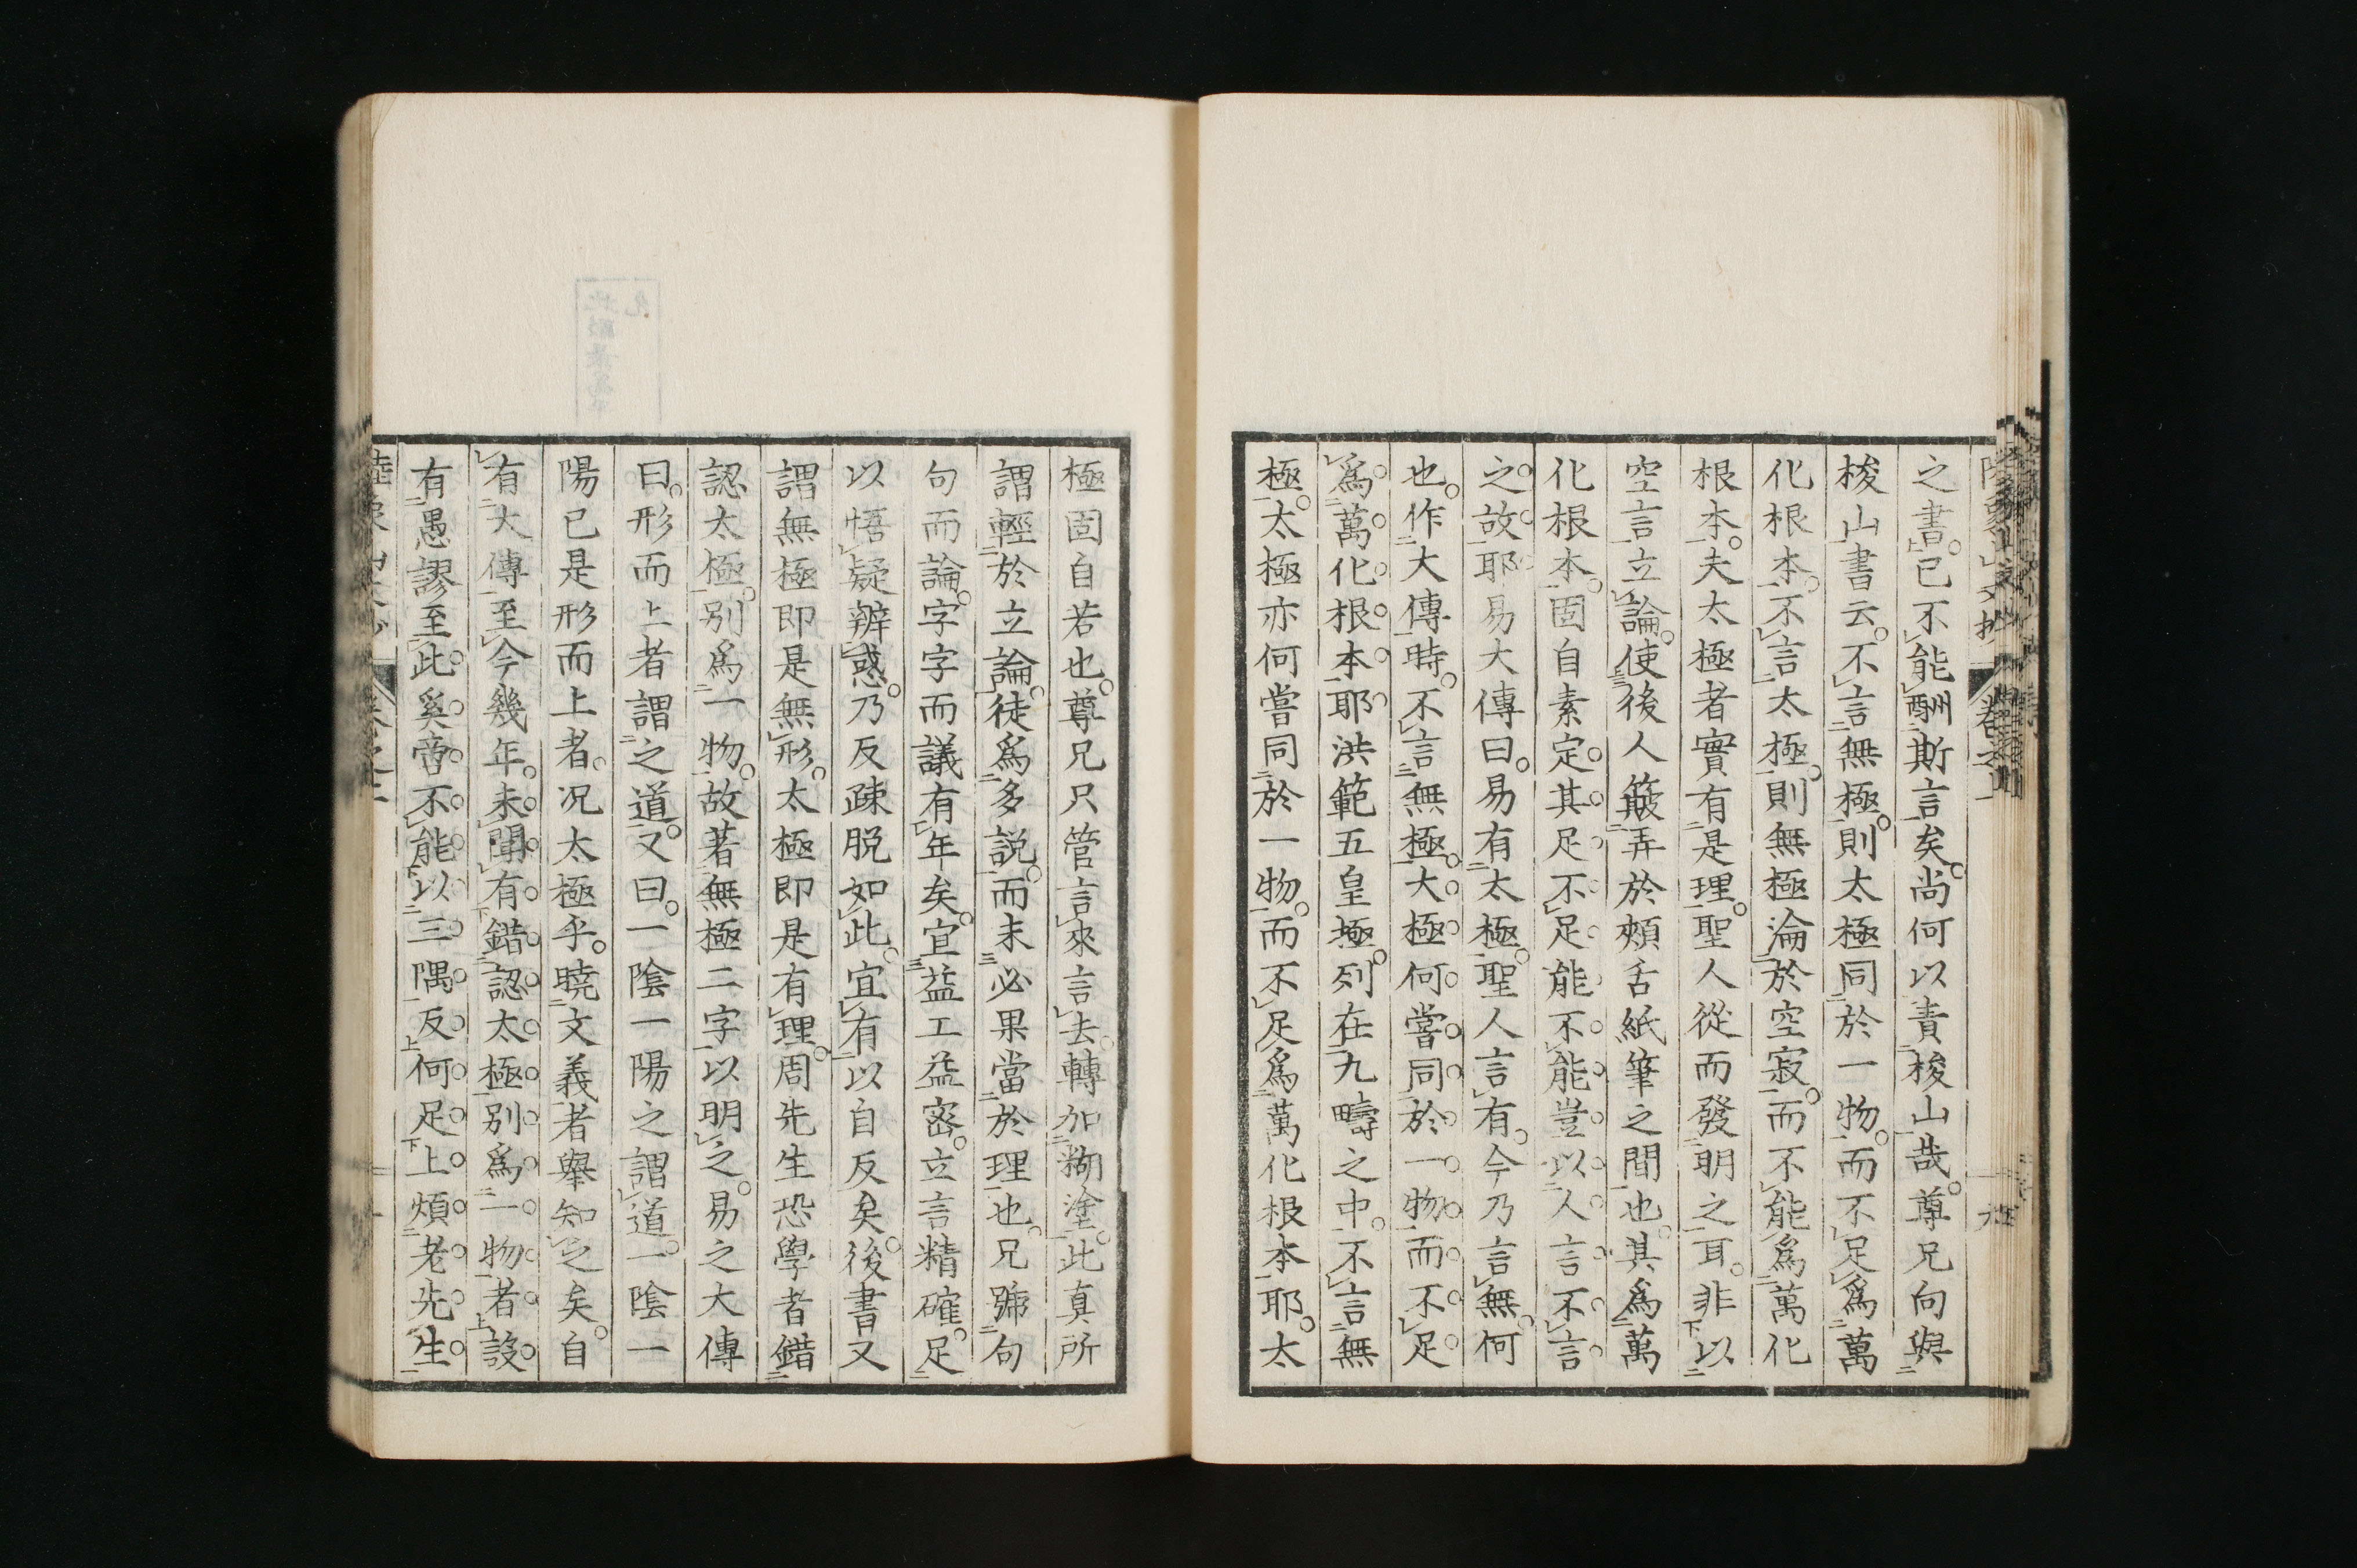 之書已不能酬斯言矣尚何以責梭山哉尊兄向與
梭山書云不言無極則太極同於一物而不足爲萬
化根本不言太極則無極淪於空寂而不能爲萬化
根本夫太極者實有是理聖人從而發明之耳非以
空言立論使後人簸弄於頰舌紙筆之間也其爲萬
化根本固自素定其足不足能不能豈以人言不言
之故耶易大傳曰易有太極聖人言有今乃言無何
也作大傳時不言無極大極何嘗同於一物而不足
爲萬化根本耶洪範五皇極列在九疇之中不言無
極太極亦何嘗同於一物而不足爲萬化根本耶太
極固自若也尊兄只管言來言去轉加糊塗此真所
謂輕於立論徒爲多説而未必果當於理也兄號句
句而論字字而議有年矣宜益工益密立言精確足
以悟疑辨惑乃反疎脱如此宜有以自反矣後書又
謂無極即是無形太極即是有理周先生恐學者錯
認太極別爲一物故著無極二字以明之易之大傳
曰形而上者謂之道又曰一陰一陽之謂道一陰一
陽已是形而上者况太極乎曉文義者舉知之矣自
有大傳至今幾年未聞有錯認太極別爲一物者設
有愚謬至此奚啻不能以三隅反何足上煩老先生